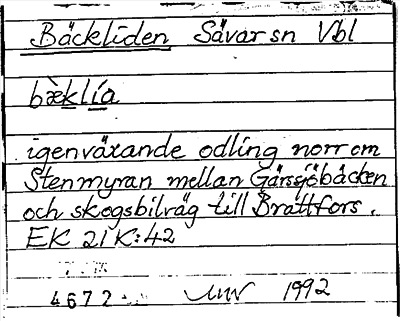 Bäckliden Sävar sn Vbl
bæklía
igenväxande odling norr om
Stenmyran mellan Gärssjöbäcken
och skogsbilväg till Brattfors.
EK 21K:42
4672
1992